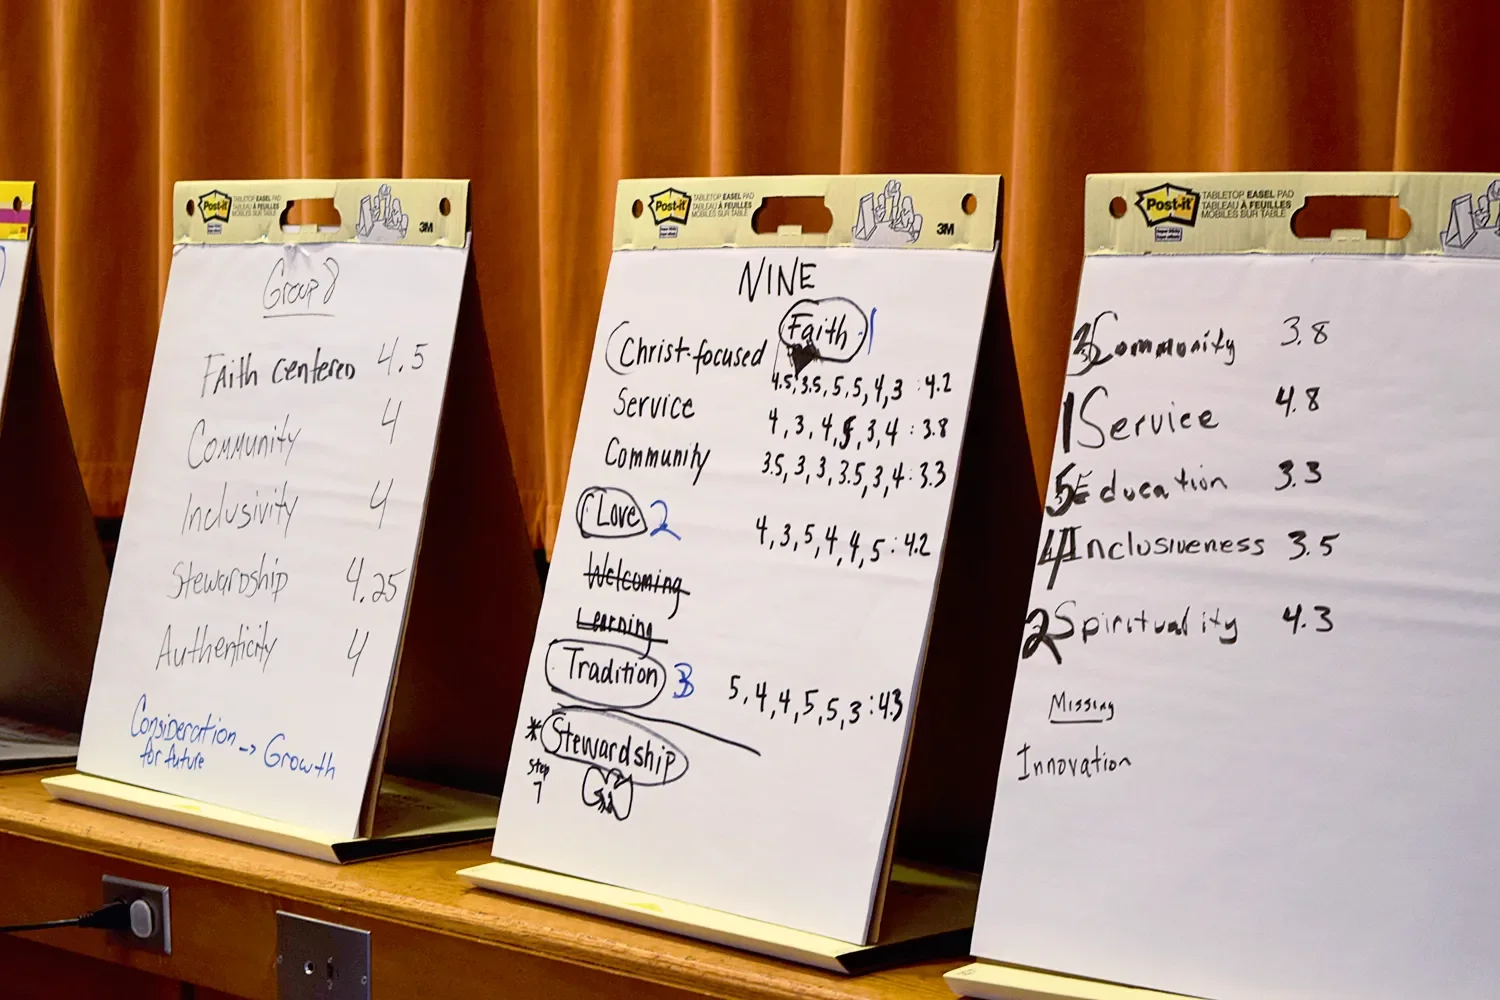 Post-it
TABLETOP EASEL PAD
TABLEAU À FEUILLES
MOBILES SUR TABLE
3M
Group 8
Faith centered 4.5
Community 4
Inclusivity 4
Stewardship 4.25
Authenticity 4
Consideration
for future -> Growth
Post-it
TABLETOP EASEL PAD
TABLEAU À FEUILLES
MOBILES SUR TABLE
3M
NINE
Faith 1
Christ-focused
4.5, 3.5, 5, 5, 4, 3 : 4.2
Service 4, 3, 4, 5, 3, 4 : 3.8
Community 3.5, 3, 3, 3.5, 3, 4 : 3.3
Love 2 4, 3, 5, 4, 4, 5 : 4.2
Welcoming
Learning
Tradition 3 5, 4, 4, 5, 5, 3 : 4.3
* Stewardship
Step
7
Post-it
TABLETOP EASEL PAD
TABLEAU À FEUILLES
MOBILES SUR TABLE
3 Community 3.8
1 Service 4.8
5 Education 3.3
4 Inclusiveness 3.5
2 Spirituality 4.3
Missing
Innovation